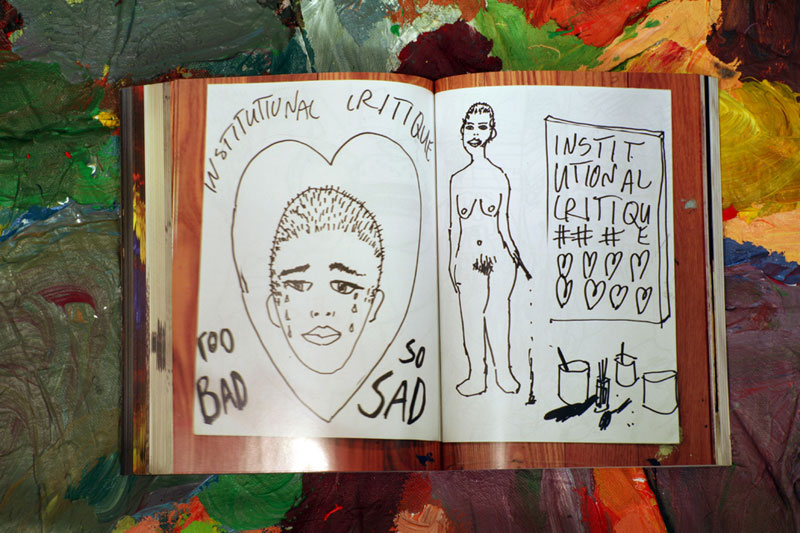 INSTITUTIONAL CRITIQUE
TOO
BAD
SO
SAD
INSTIT
UTIONAL
CRITIQU
### E